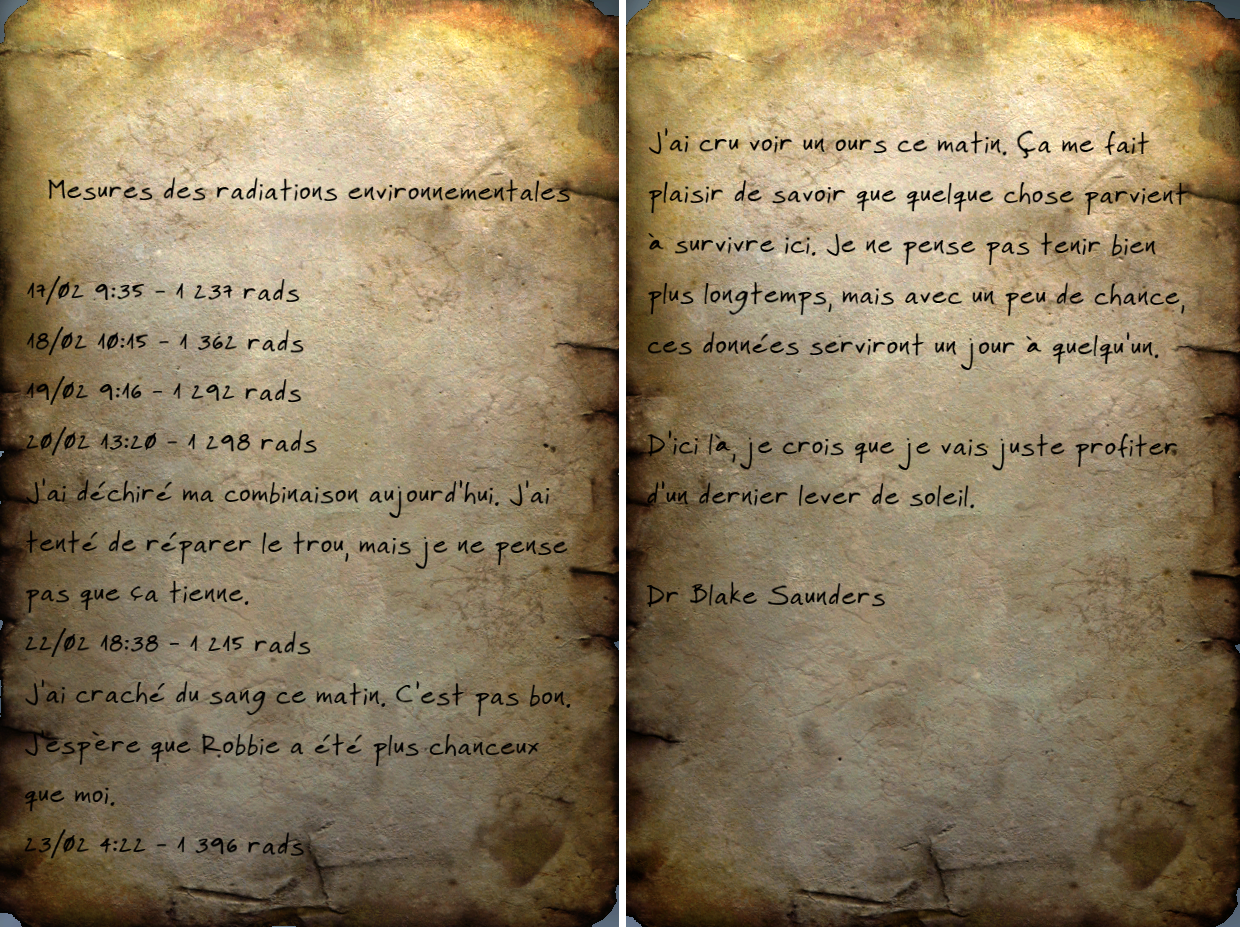 Mesures des radiations environnementales
17/02 9:35 - 1 237 rads
18/02 10:15 - 1 362 rads
19/02 9:16 - 1 292 rads
20/02 13:20 - 1 298 rads
J'ai déchiré ma combinaison aujourd'hui. J'ai
tenté de réparer le trou, mais je ne pense
pas que ça tienne.
22/02 18:38 - 1 215 rads
J'ai craché du sang ce matin. C'est pas bon.
J'espère que Robbie a été plus chanceux
que moi.
23/02 4:22 - 1 396 rads
J'ai cru voir un ours ce matin. Ça me fait
plaisir de savoir que quelque chose parvient
à survivre ici. Je ne pense pas tenir bien
plus longtemps, mais avec un peu de chance,
ces données serviront un jour à quelqu'un.
D'ici là, je crois que je vais juste profiter
d'un dernier lever de soleil.
Dr Blake Saunders